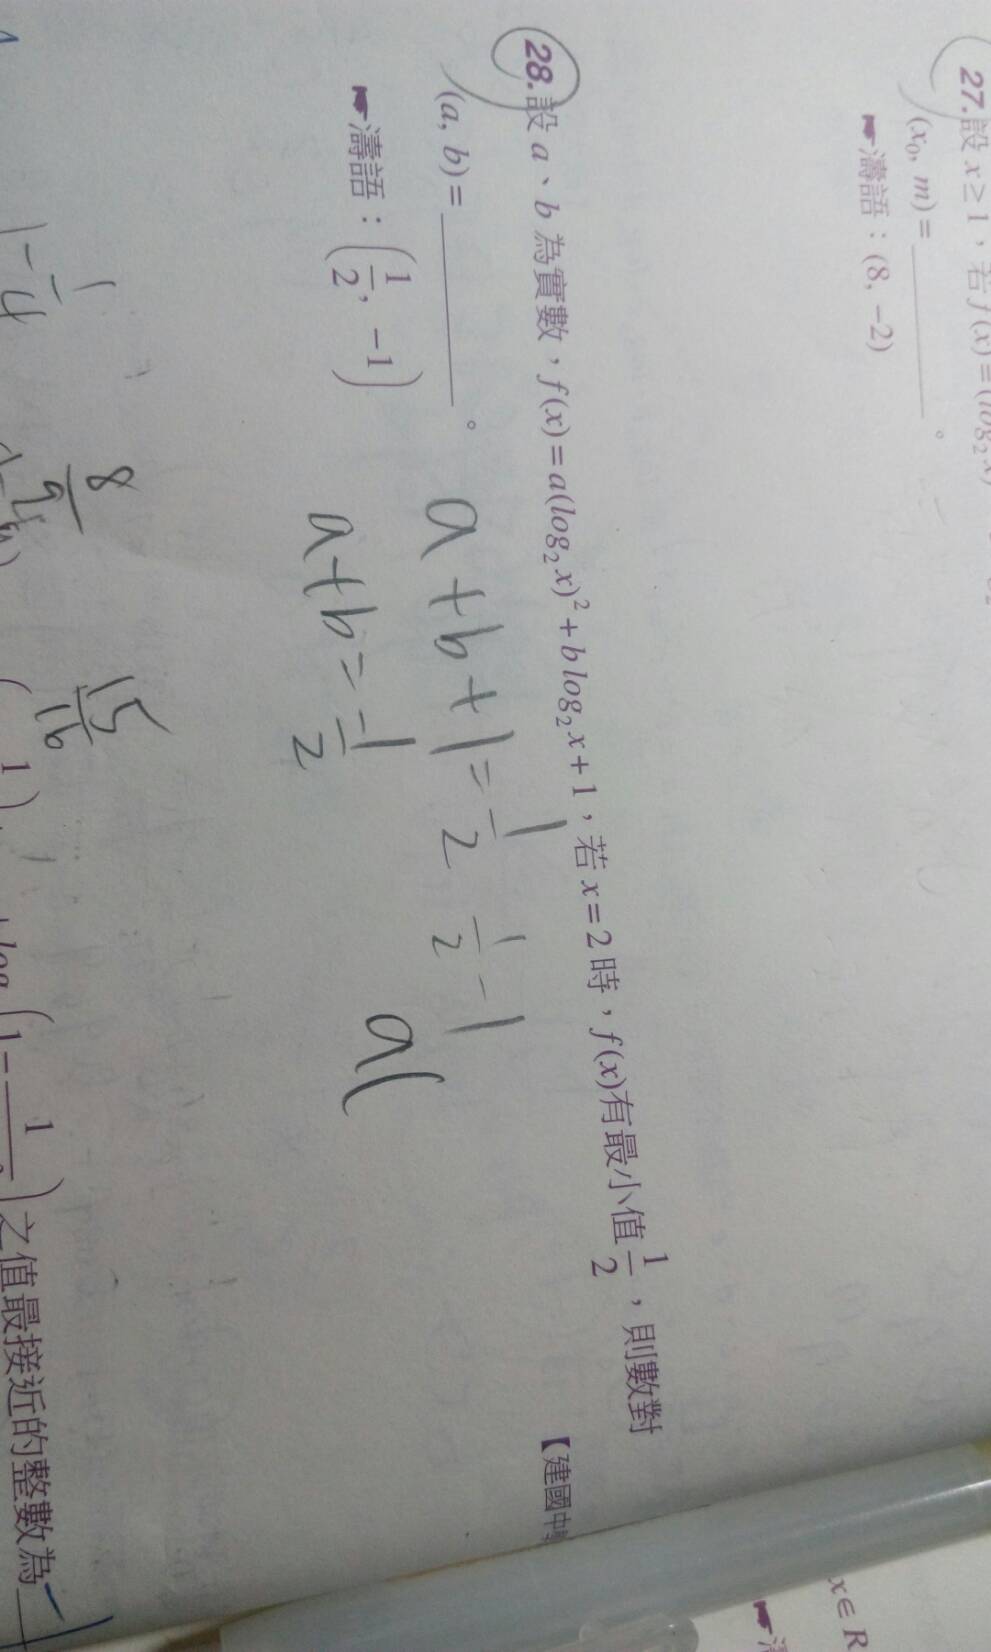 27.設 x≥1，若 f(x)=(log₂x)
(x₀, m)=______。
☛濤語：(8, −2)
28.設 a、b 為實數，f(x)=a(log₂x)²+b log₂x+1，若 x=2 時，f(x)有最小值 1/2，則數對
【建國中
(a, b)=______。
☛濤語：(1/2, −1)
a+b+1=1/2
1/2−1
a+b=−1/2
a(
8/9
15/16
1−1/4
之值最接近的整數為
x∈R